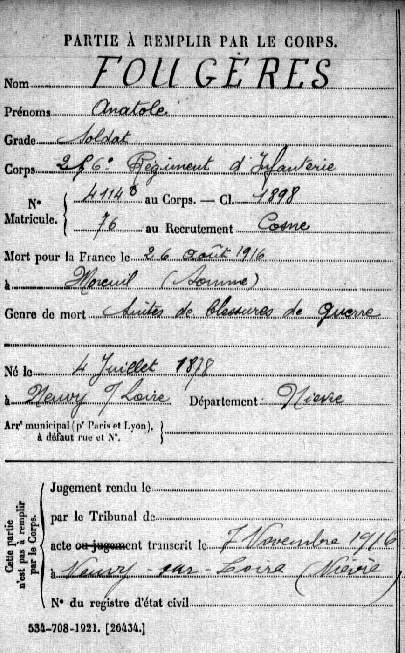 PARTIE À REMPLIR PAR LE CORPS.
Nom FOUGÈRES
Prénoms Anatole
Grade Soldat
Corps 256e Régiment d'Infanterie
N° Matricule. { 4114 au Corps. — Cl. 1898
76 au Recrutement Cosne
Mort pour la France le 26 août 1916
à Moreuil (Somme)
Genre de mort Suites de blessures de guerre
Né le 4 Juillet 1878
à Neuvy s/ Loire Département Nièvre
Arrt municipal (pr Paris et Lyon), }
à défaut rue et N°.
Cette partie n'est pas à remplir par le Corps.
Jugement rendu le
par le Tribunal de
acte ou jugement transcrit le 7 Novembre 1916
à Neuvy-sur-Loire (Nièvre)
N° du registre d'état civil
534-708-1921. [26434.]